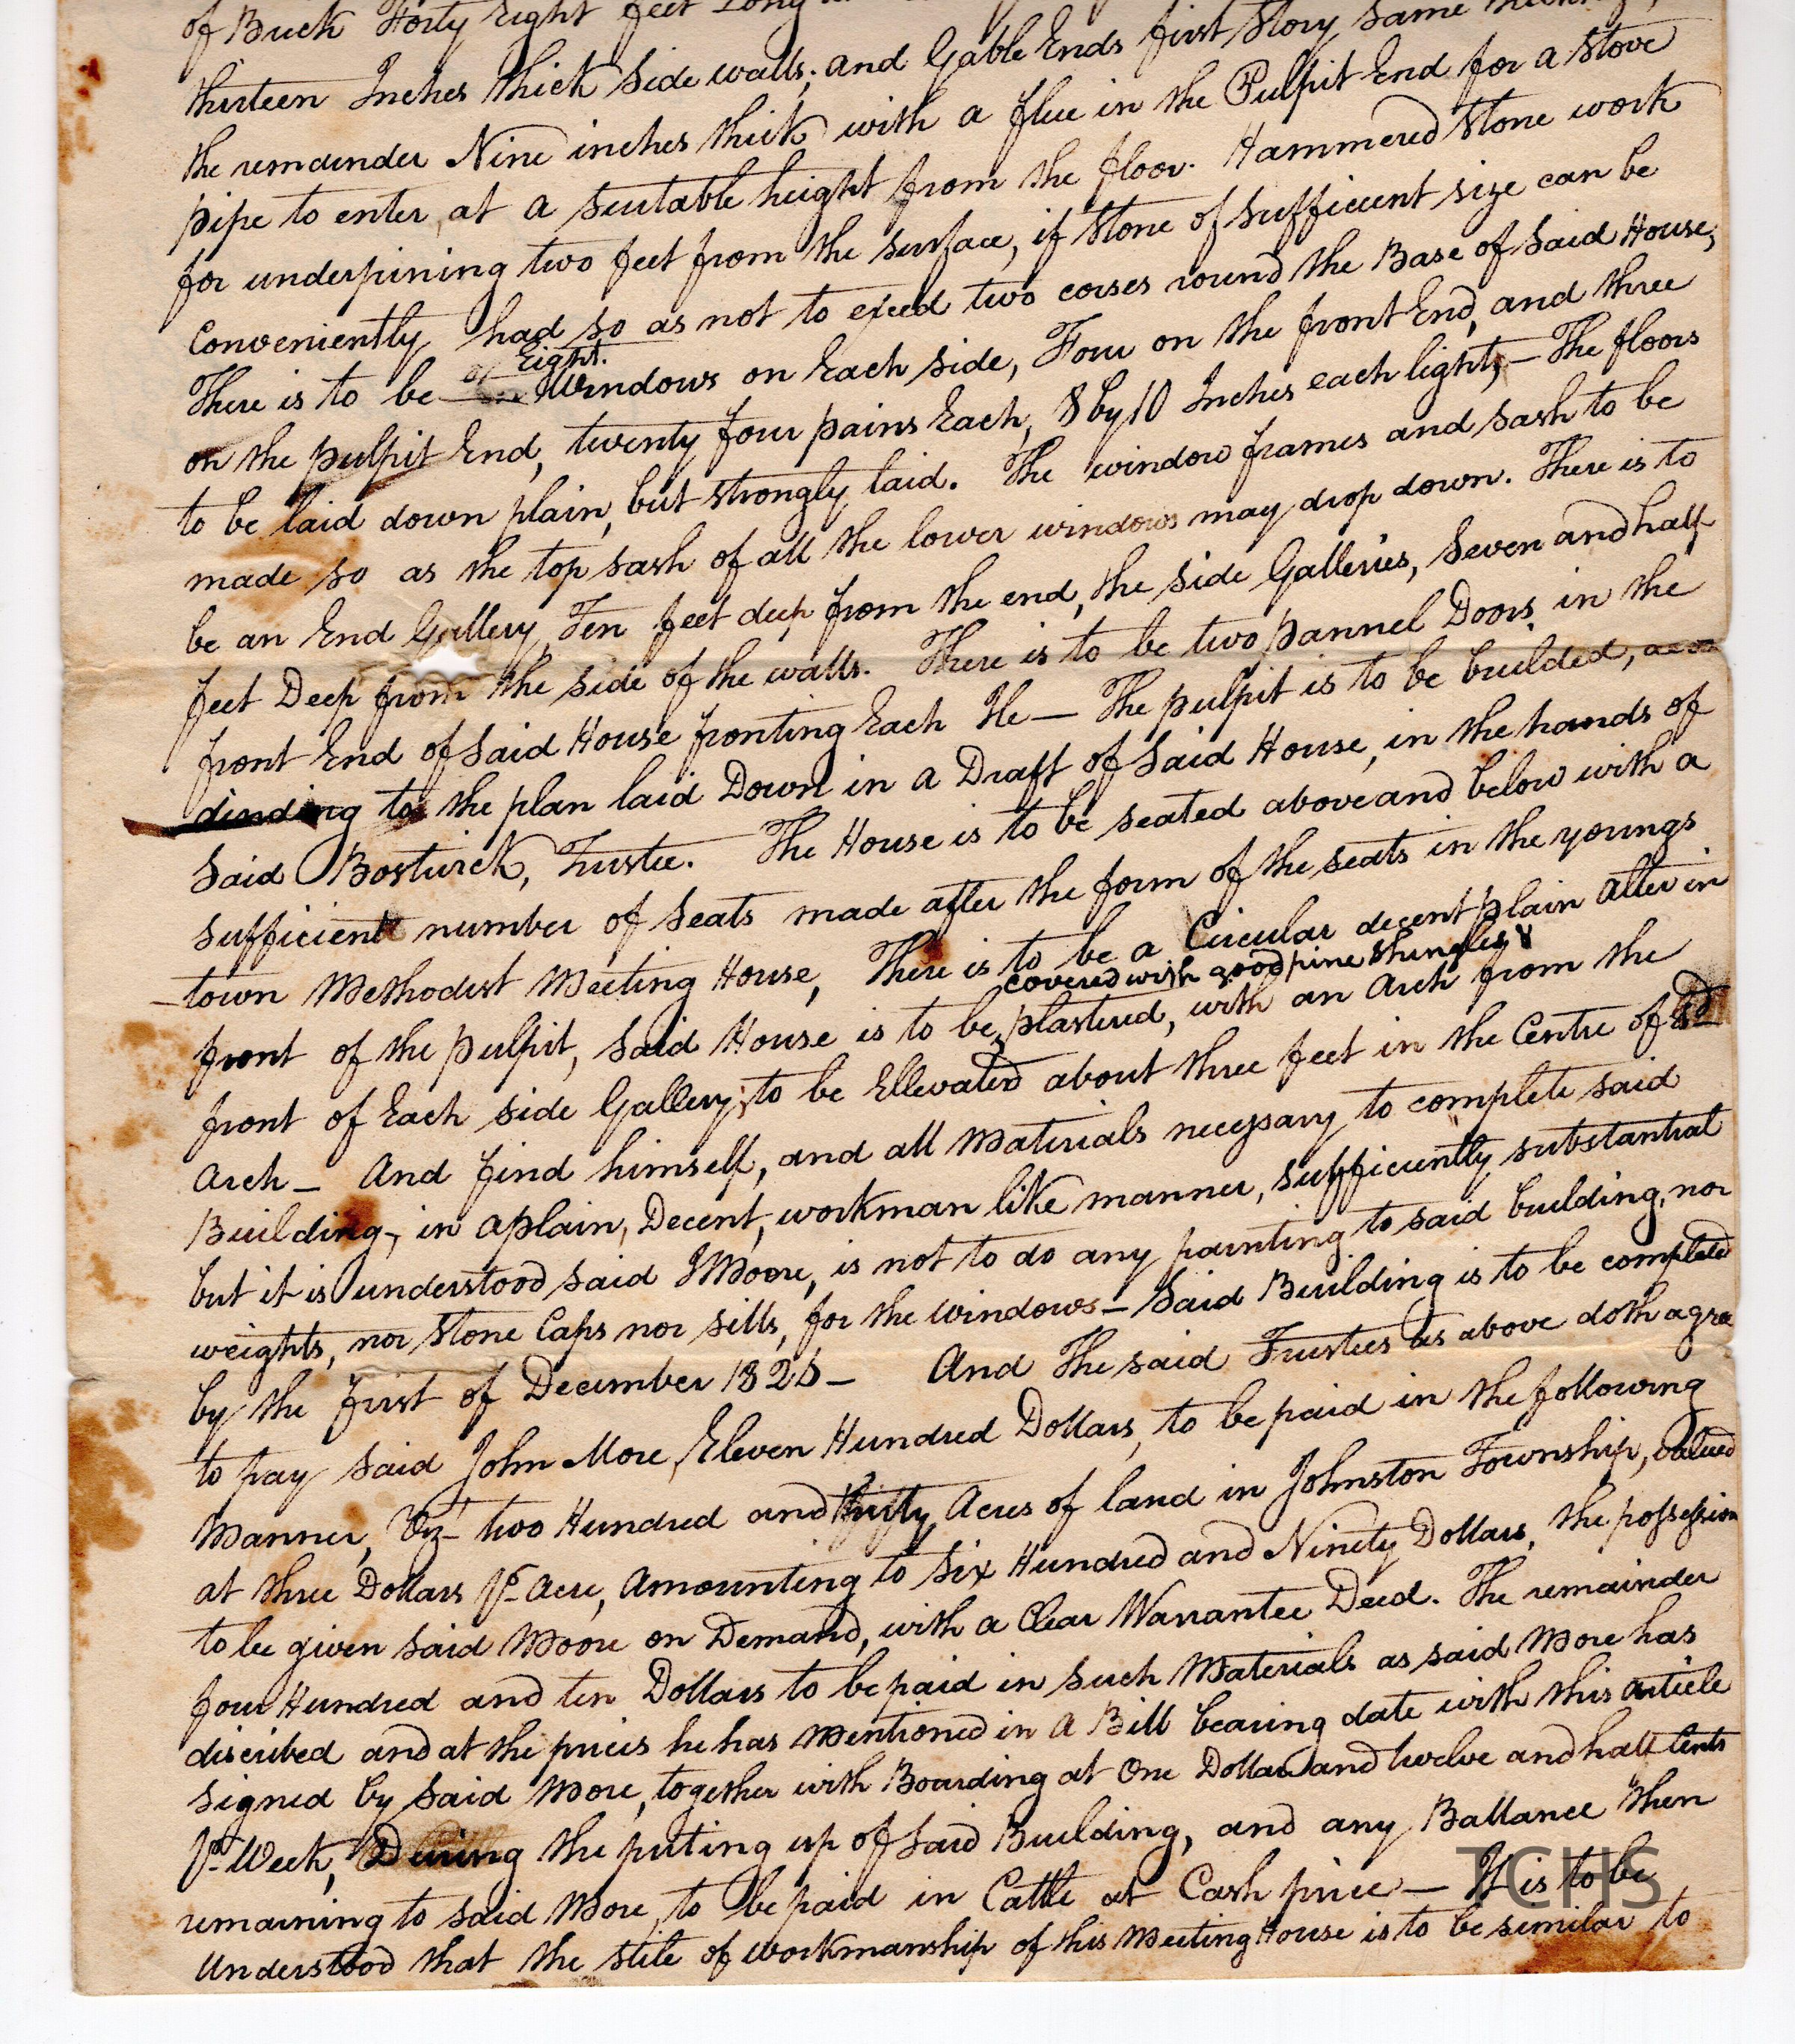 of Brick Forty Eight feet Long
thirteen Inches thick Side walls; and Gable Ends first Story same
the remainder Nine inches thick with a flue in the Pulpit End for a Stove
pipe to enter at a suitable height from the floor. Hammered Stone work
for underpining two feet from the surface, if Stone of sufficient size can be
Conveniently had so as not to exeed two corses round the Base of Said House,
There is to be Eight. Windows on Each side, Four on the front End, and three
on the pulpit End, twenty four pains Each, 8 by 10 Inches each light, – The floors
to be laid down plain, but strongly laid. The window frames and sash to be
made so as the top sash of all the lower windows may drop down. There is to
be an End Gallery Ten feet deep from the end, the side Galleries, Seven and half
feet Deep from the side of the walls. There is to be two pannel Doors, in the
front End of Said House fronting Each Ile — The pulpit is to be builded,
to the plan laid Down in a Draft of Said House, in the hands of
Said Bostwick, Trustee. The House is to be seated above and below with a
sufficient number of Seats made after the form of the seats in the youngs
town Methodist Meeting House, There is to be a Circular decent plain Alter in
front of the pulpit, Said House is to be covered with good pine Shingles & plastered, with an Arch from the
front of Each side Gallery; to be Ellevated about three feet in the Centre of sd
Arch – And find himself, and all Materials necessary to complete said
Building, in a plain, Decent, workman like manner, sufficiently substantial
but it is understood Said J Moore, is not to do any painting to said building, nor
weights, nor Stone Caps nor sills, for the windows – Said Building is to be completed
by the first of December 1826 – And The said Trustees as above doth agree
to pay said John More, Eleven Hundred Dollars, to be paid in the following
Manner, Viz – two Hundred and thirty Acres of land in Johnston Township, valued
at three Dollars Pr Acre, Amounting to Six Hundred and Ninety Dollars, the possession
to be given said Moore on Demand, with a Clear Warrantee Deed. The remainder
four Hundred and ten Dollars to be paid in such Materials as said More has
discribed and at the prices he has Mentioned in A Bill bearing date with this Article
Signed by Said More, together with Boarding at One Dollar and twelve and half Cents
Pr Week, During the puting up of Said Building, and any Ballance then
remaining to said More, to be paid in Cattle at Cash price — It is to be
Understood that the stile of workmanship of this Meeting House is to be similar to
TCHS